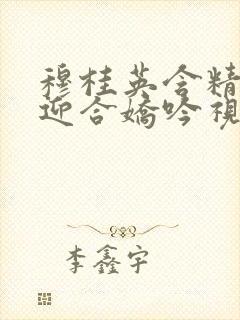 穆桂英含精
迎合嬌吟視
李鑫宇